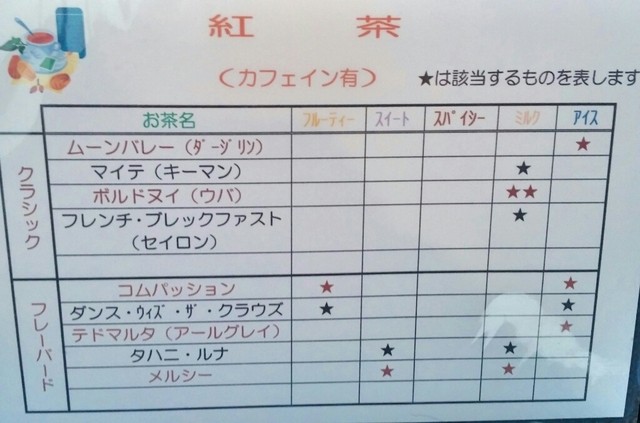 紅 茶
（カフェイン有） ★は該当するものを表します
お茶名 フルーティー スイート スパイシー ミルク アイス
クラシック
ムーンバレー（ダージリン） ★
マイテ（キーマン） ★
ボルドヌイ（ウバ） ★★
フレンチ・ブレックファスト ★
（セイロン）
フレーバード
コムパッション ★ ★
ダンス・ウィズ・ザ・クラウズ ★ ★
テドマルタ（アールグレイ） ★
タハニ・ルナ ★ ★
メルシー ★ ★